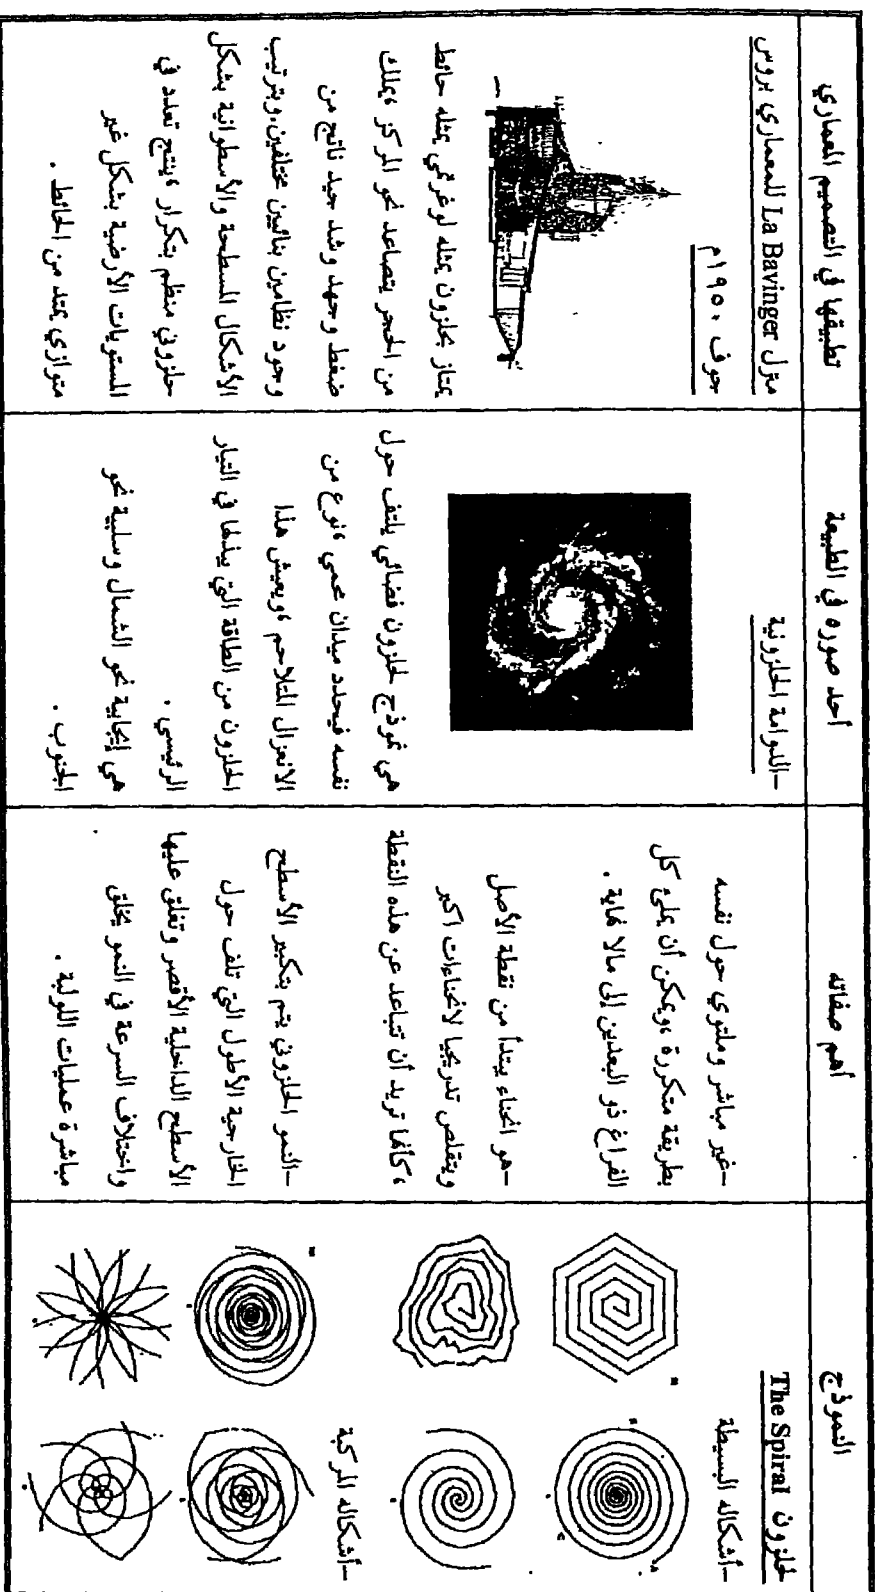 النموذج
أهم صفاته
أحد صوره في الطبيعة
تطبيقها في التصميم المعماري
لحلزون The Spiral
-أشكاله البسيطة
-أشكاله المركبة
-غير مباشر وملتوي حول نفسه
بطريقة متكررة ،ويمكن أن يملئ كل
الفراغ ذو البعدين إلى مالا نهاية .
-هو انحناء يبتدأ من نقطة الأصل
ويتقلص تدريجيا لانحناءات اكبر
،كأنما تريد أن تتباعد عن هذه النقطة
-النمو الحلزوني يتم بتكبير الأسطح
الخارجية الأطول التي تلف حول
الأسطح الداخلية الأقصر وتغلق عليها
واختلاف السرعة في النمو يخلق
مباشرة عمليات اللولبة .
-الدوامة الحلزونية
هي نموذج لحلزون فضائي يلتف حول
نفسه فيحدد ميدان محمي ،نوع من
الانعزال المتلاحم ،ويعيش هذا
الحلزون من الطاقة التي يبذلها في التيار
الرئيسي .
هي إيجابية نحو الشمال وسلبية نحو
الجنوب .
منزل La Bavinger للمعماري بروس
جوف ١٩٥٠م
يمتاز بحلزون يمثله لوغرثمي يمثله حائط
من الحجر يتصاعد نحو المركز ،يملك
ضغط وجهد وشد جيد ناتج من
وجود نظامين بنائيين مختلفين،وبترتيب
الأشكال المسطحة والأسطوانية بشكل
حلزوني منظم بتكرار ،ينتج تعدد في
المستويات الأرضية بشكل غير
متوازي يمتد من الحائط .